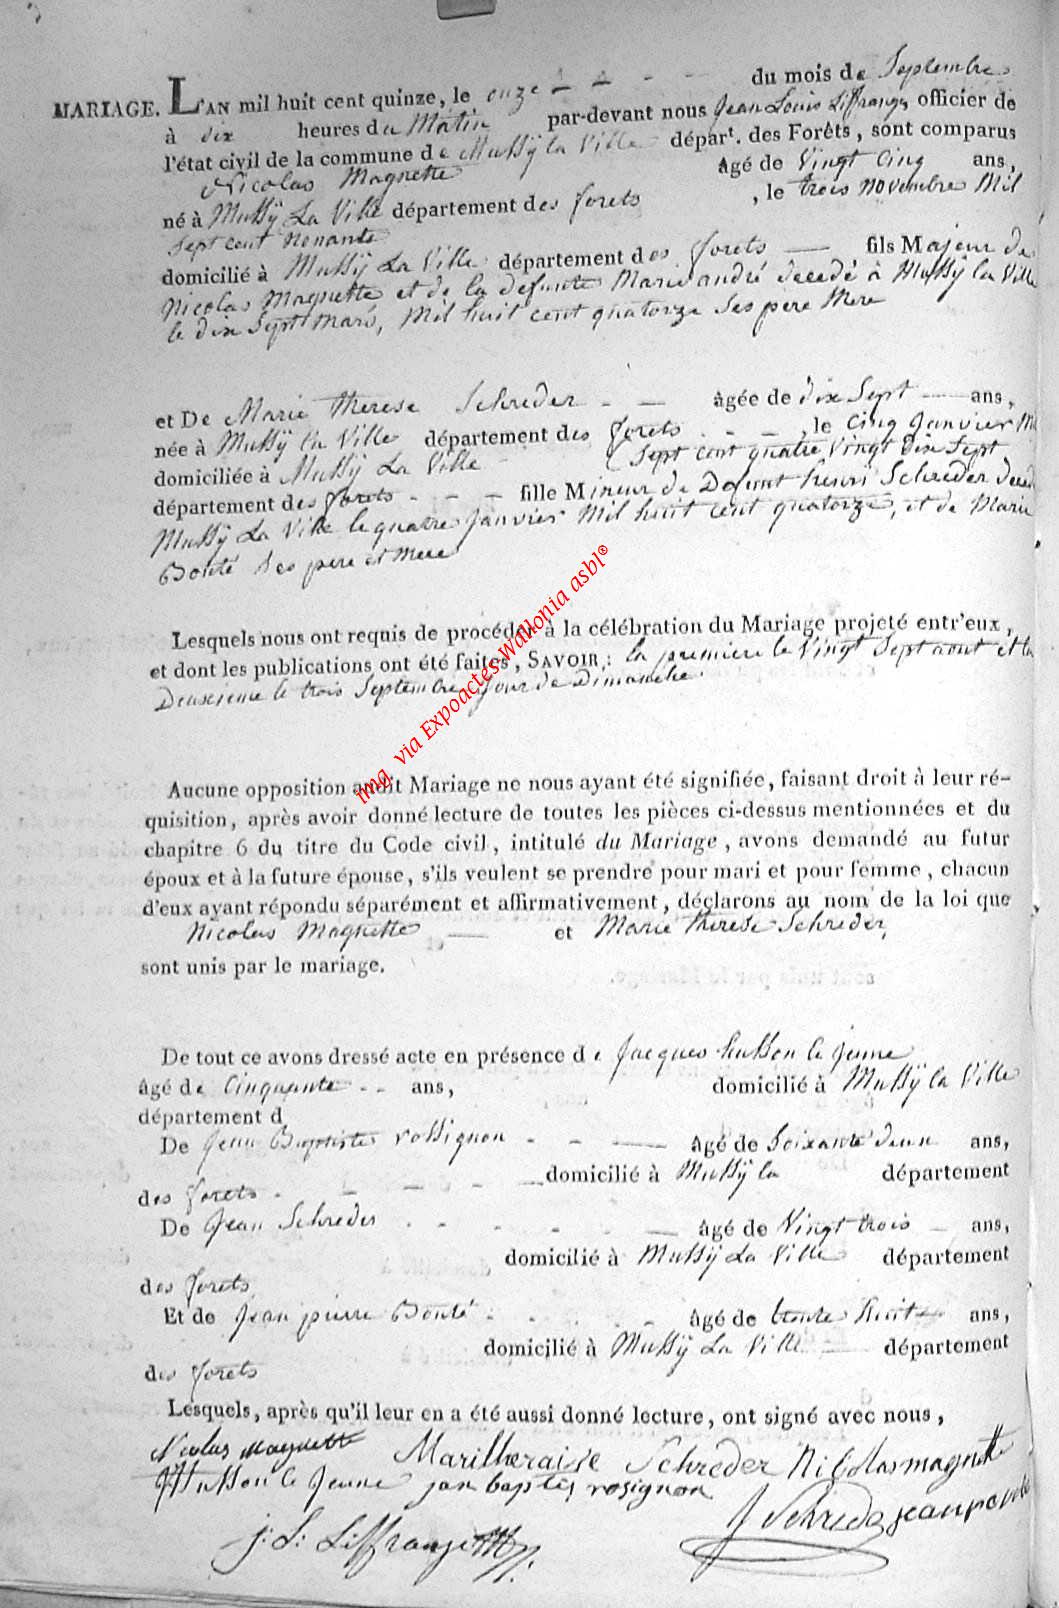 MARIAGE. L'AN mil huit cent quinze, le onze — — - — du mois de Septembre
à dix heures du Matin par-devant nous Jean Louis Liffrange officier de
l'état civil de la commune de Mussÿ la Ville départ. des Forêts, sont comparus
Nicolas Magnette âgé de Vingt Cinq ans,
né à Mussÿ La Ville département des forets, le trois novembre Mil
Sept cent Nonante
domicilié à Mussÿ La Ville département des forets — fils Majeur de
Nicolas Magnette et de la defunte Marie andré decedé à Mussÿ la Ville
le dix Sept Mars, Mil huit cent quatorze Ses pere Mere
et De Marie Therese Schreder - — âgée de dix Sept — ans,
née à Mussÿ la Ville département des forets - - -, le cinq Janvier Mil
Sept cent quatre Vingt Dix Sept
domiciliée à Mussÿ La Ville
département des forets - - - fille Mineur de Defunt henri Schreder
Mussÿ La Ville le quatre Janvier Mil huit cent quatorze, et de Marie
Bonté Ses pere et Mere
Lesquels nous ont requis de procéder à la célébration du Mariage projeté entr'eux,
et dont les publications ont été faites, SAVOIR: la premiere le Vingt Sept aout et la
Deuxieme le trois Septembre Jour de Dimanche.
img. via Expoactes-Wallonia asbl®
Aucune opposition audit Mariage ne nous ayant été signifiée, faisant droit à leur ré-
quisition, après avoir donné lecture de toutes les pièces ci-dessus mentionnées et du
chapitre 6 du titre du Code civil, intitulé du Mariage, avons demandé au futur
époux et à la future épouse, s'ils veulent se prendre pour mari et pour femme, chacun
d'eux ayant répondu séparément et affirmativement, déclarons au nom de la loi que
Nicolas Magnette — et Marie Therese Schreder,
sont unis par le mariage.
De tout ce avons dressé acte en présence de Jacques husson le Jeune
âgé de Cinquante - - ans, domicilié à Mussÿ la Ville
département d
De Jean Baptiste rossignon - - — âgé de Soixante d'eun ans,
domicilié à Mussÿ la département
des forets - - - - -
De Jean Schreder - - - - - — âgé de Vingt trois — ans,
domicilié à Mussÿ La Ville département
des forets
Et de Jean pierre Bonté - - - - âgé de trente huit ans,
domicilié à Mussÿ La Ville — département
des forets
Lesquels, après qu'il leur en a été aussi donné lecture, ont signé avec nous,
Nicolas Magnette Marilheraise Schreder Nicolas magnette
JHusson le Jeune jan baptis rosignon
J Schreder
J: L: Liffrange